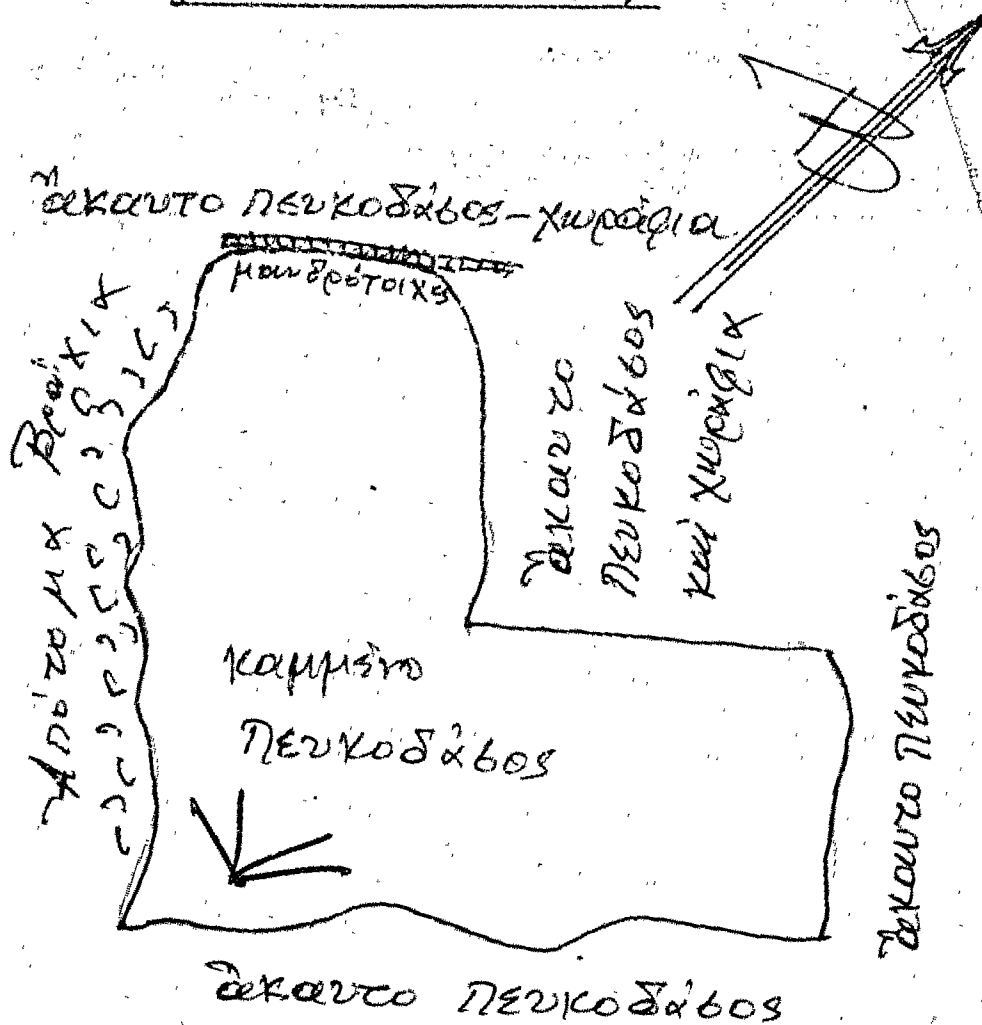 ἄκαυτο πευκοδάσος-χωράφια
μανδρότοιχος
Ἀπότομα Βράχια
ἄκαυτο
πευκοδάσος
καί χωράφια
καμμένο
πευκοδάσος
ἄκαυτο πευκοδάσος
ἄκαυτο πευκοδάσος